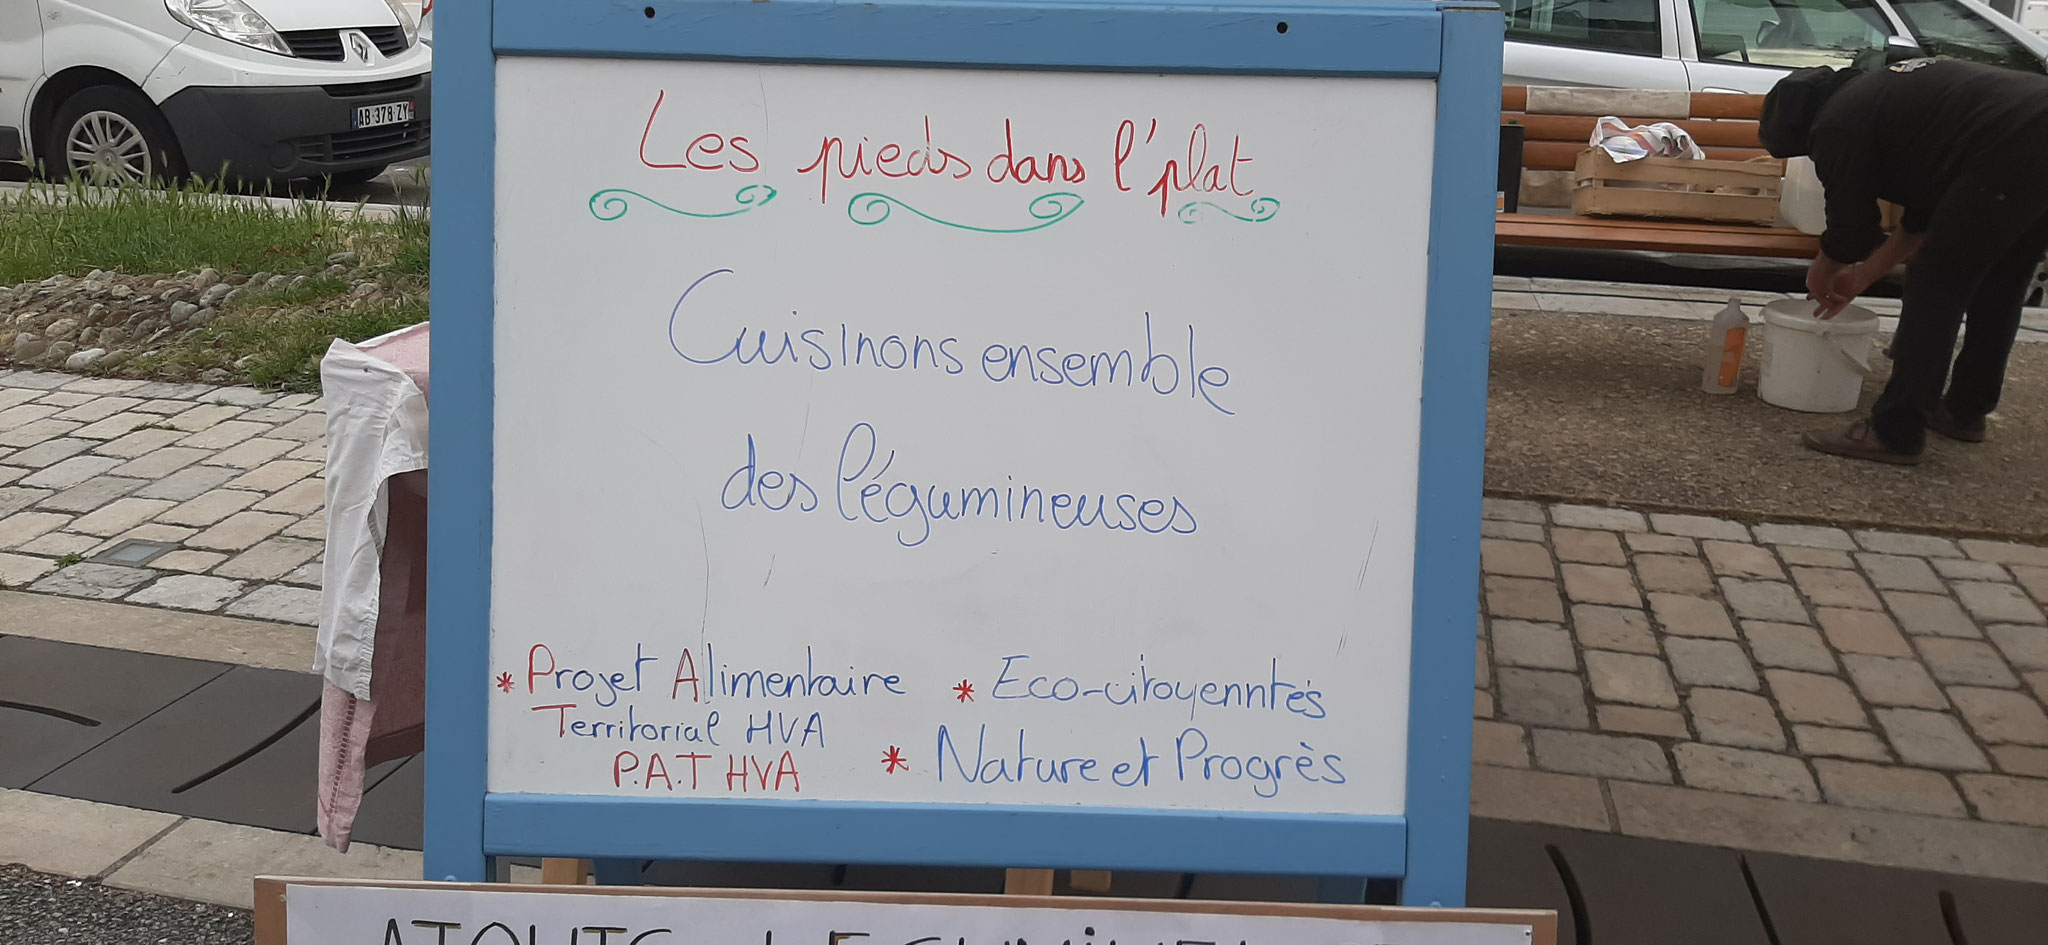 Les pieds dans l'plat
Cuisinons ensemble
des légumineuses
* Projet Alimentaire
Territorial HVA
P.A.T HVA
* Eco-citoyenntés
* Nature et Progrès
AB 378 ZY